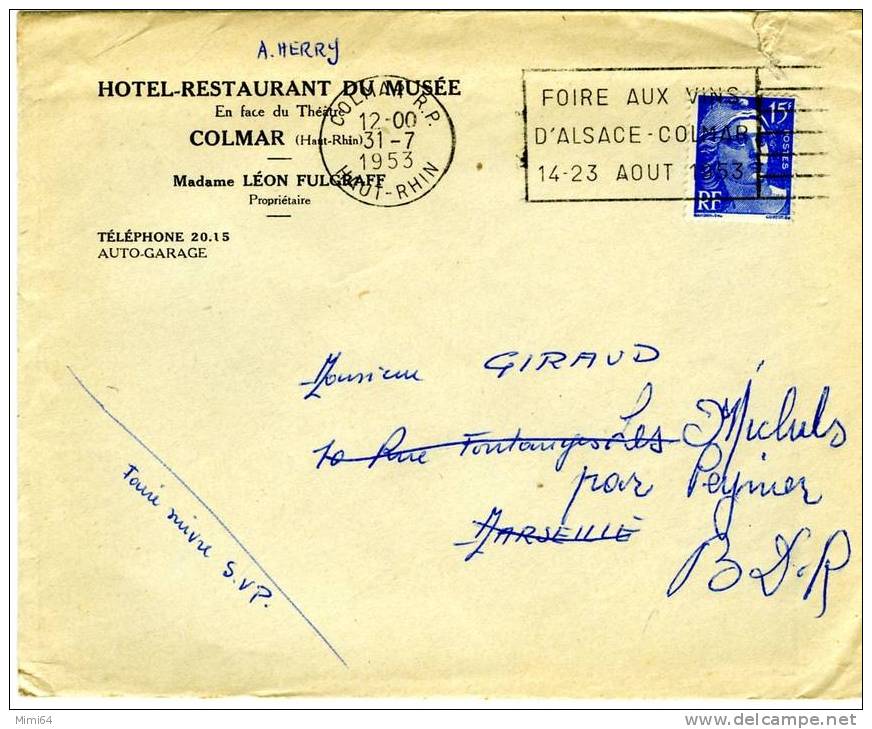 A. HERRY
HOTEL-RESTAURANT DU MUSÉE
En face du Théâtre
COLMAR (Haut-Rhin)
Madame LÉON FULGRAFF
Propriétaire
TÉLÉPHONE 20.15
AUTO-GARAGE
COLMAR R.P.
12-00
31-7
1953
HAUT-RHIN
FOIRE AUX VINS
D'ALSACE-COLMAR
14-23 AOUT 1953
15F
POSTES
RF
Monsieur GIRAUD
10 Rue Fontanges
Les Michels
par Peynier
MARSEILLE
B.D.R
Faire suivre S.V.P.
Mimi64
www.delcampe.net